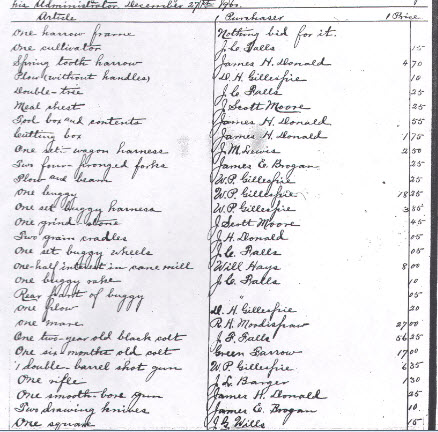 his Administrator. December 27th
Article Purchaser Price
One harrow frame Nothing bid for it.
One cultivator J. C. Falls 15
Spring tooth harrow James H. Donald 4 70
Plow (without handles) D. H. Gillespie 10
Double-tree J. C. Falls 25
Meal chest J Scott Moore 25
Tool box and contents James H. Donald 55
Cutting box James H. Donald 1 75
One set wagon harness J. M. Lewis 2 50
Two four pronged forks James E. Brogan 25
Plow and beam W. P. Gillespie 25
One buggy W. P. Gillespie 18 25
One set buggy harness W. P. Gillespie 3 85
One grind-stone J Scott Moore 45
Two grain cradles J. H. Donald 05
One set buggy wheels J. C. Falls 05
One-half interest in cane mill Will Hays 8 00
One buggy rake J. C. Falls 10
Rear part of buggy " 05
One plow D. H. Gillespie 20
One mare R. H. 27 00
One two-year old black colt J. F. Falls 56 25
One six months old colt Green Farrow 17 00
1 double-barrel shot gun W. P. Gillespie 6 35
One rifle J. L. Barger 1 30
One smooth-bore gun James H. Donald 25
Two drawing knives James E. Brogan 10
One square J. G. Wills 15